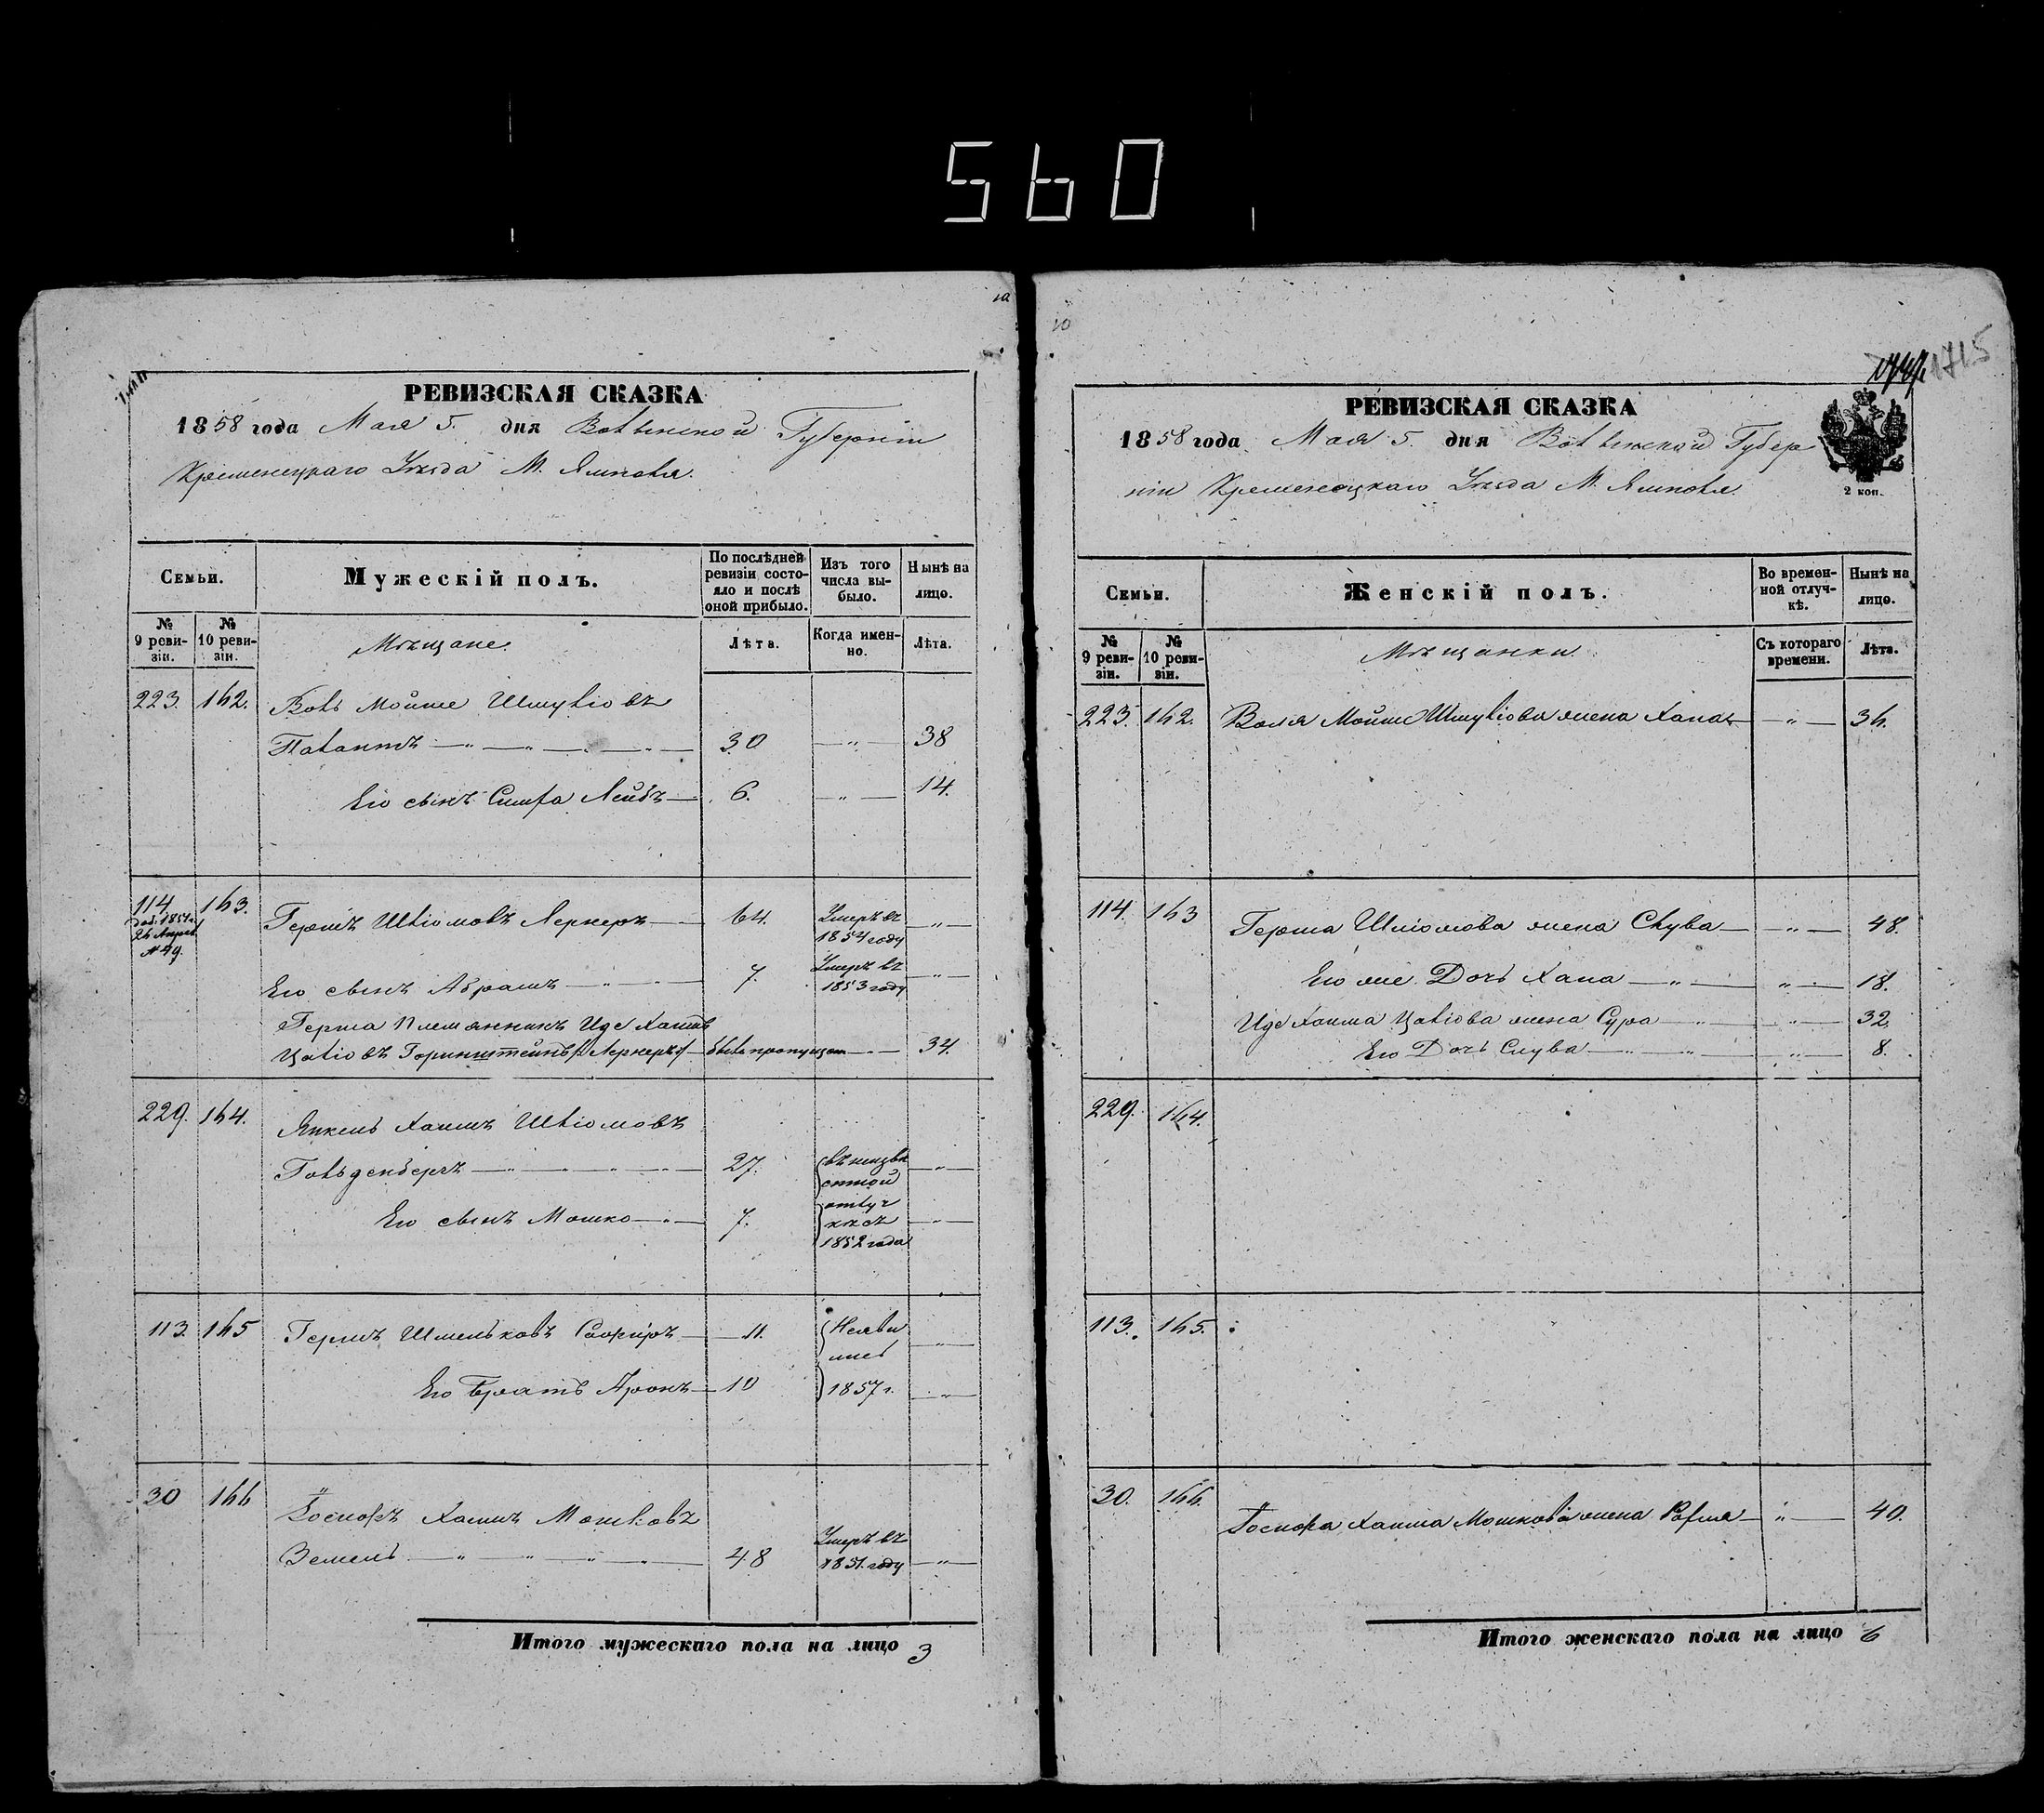 560
10
РЕВИЗСКАЯ СКАЗКА
1858 года Мая 5. дня Волынской Губерніи
Кременецкаго Уѣзда М. Ямполя.
Семьи.
Мужескій полъ.
По послѣдней ревизіи состояло и послѣ оной прибыло.
Изъ того числа выбыло.
Нынѣ на лицо.
№ 9 ревизіи.
№ 10 ревизіи.
Мѣщане.
Лѣта.
Когда именно.
Лѣта.
223. 162. Волъ Мойше Шмуліовъ
Палантъ 30 — " — 38
Его сынъ Симха Лейбъ 6. — " — 14.
114 163. Гершъ Шліомовъ Лернеръ 64. Умеръ въ 1854 году — " —
26 Апрѣля
№ 49.
Его сынъ Абрамъ 7. Умеръ въ 1853 году — " —
Герша Племянникъ Иде Хаимъ
Цаліовъ Горинштейнъ (Лернеръ) былъ пропущен 34.
229. 164. Янкель Хаимъ Шліомовъ
Гольденберъ 27. въ неизвѣстной — " —
Его сынъ Мошко 7. отлучкѣ съ 1852 года — " —
113. 165 Гершъ Шмельковъ Сафиръ 11. Неявились — " —
Его Братъ Аронъ 10 1857 г. — " —
30 166 Іосифъ Хаимъ Мошковъ
Земель 48 Умеръ въ 1851 году — " —
Итого мужескаго пола на лицо 3
10
1715
РЕВИЗСКАЯ СКАЗКА
1858 года Мая 5. дня Волынской Губер
ніи Кременецкаго Уѣзда М. Ямполя.
2 коп.
Семьи.
Женскій полъ.
Во временной отлучкѣ.
Нынѣ на лицо.
№ 9 ревизіи.
№ 10 ревизіи.
Мѣщанки.
Съ котораго времени.
Лѣта.
223. 162. Воля Мойше Шмуліова жена Хана — " — 36.
114. 163 Герша Шліомова жена Слува — " — 48.
Его же Дочь Хана — " — 18.
Иде Хаима Цаліова жена Сура — " — 32.
Его Дочь Слува — " — 8.
229. 164.
113. 165.
30. 166. Іосифа Хаима Мошкова жена — " — 40.
Итого женскаго пола на лицо 6